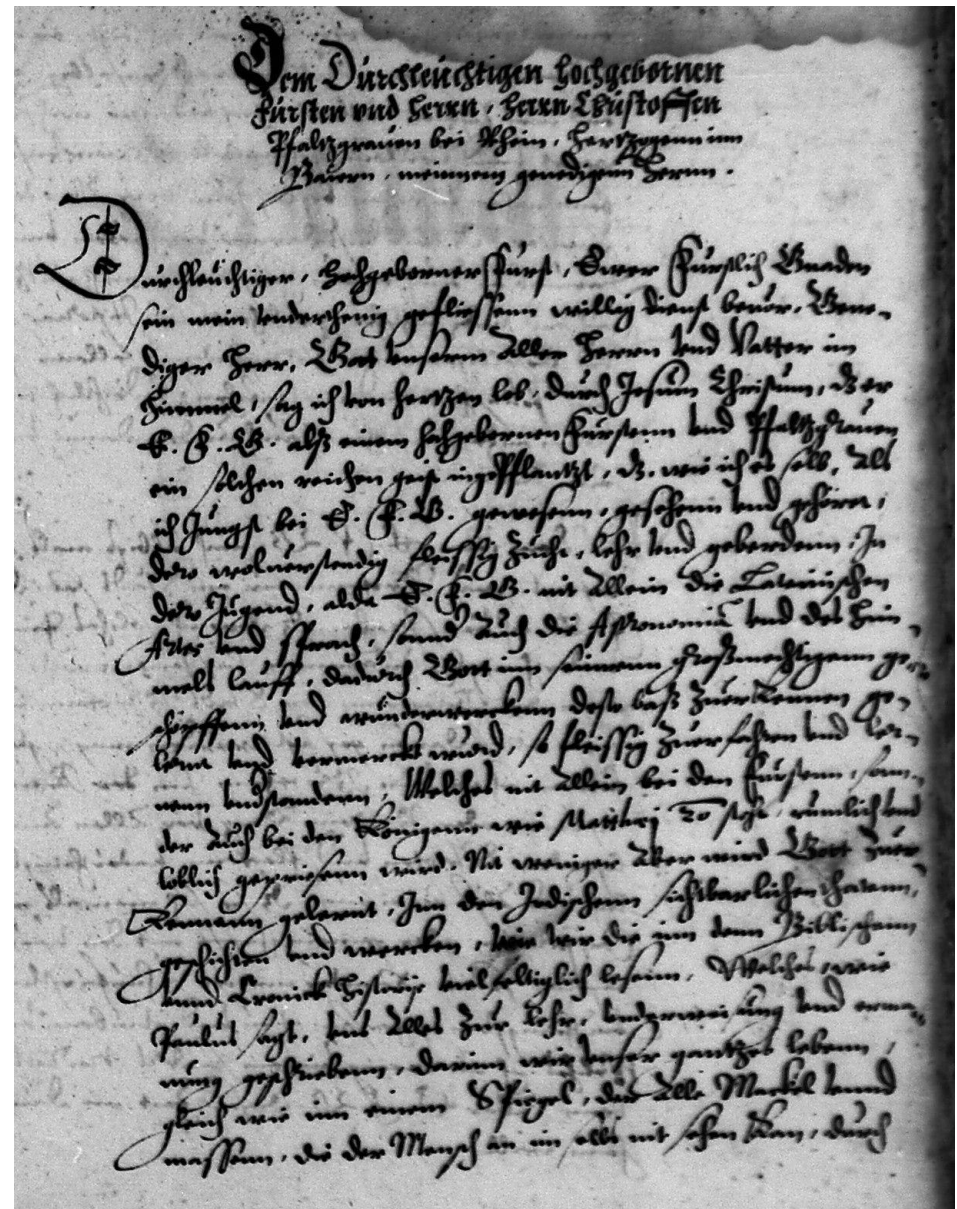 Dem Durchleuchtigen hochgebornen
Fursten vnd herrn, herrn Christoffen
Pfaltzgrauen bei Rhein, hertzogenn inn
Bairn, meinnem genedigenn herrnn.
Durchleuchtiger, Hochgeborner Furst, Ewer Furstlich Gnaden
sein mein vnderthenig gefliessenn willig dienst beuor. Gene-
diger Herr, Gott vnserm Aller Herrn vnd Vatter im
Himmel, sag ich von hertzen lob, durch Jesum Christum, dz er
E. F. G. alß einem hochgebornen Furstenn vnd Pfaltzgrauen
ein solchen reichen geist ingepflantzt, dz. wie ich es selb, Als
ich Jungst bei E. F. G. gewesenn, gesehenn vnd gehört,
dero wolverstendig fleissig zucht, lehr vnd geberdenn In
der Jugend, alda E. F. G. nit Allein die Lateinischen
Artes vnd Sprach, sonnd Auch die Astronomia vnd des Him-
mels lauff, dadurch Gott inn seinenn großmechtigenn ge-
schöpffenn vnd wunderwerckenn desto baß zuerkennen ge-
lernt vnd vermerckt wurd, so fleissig zuerfahren vnd ler-
nenn vndstanden, Welches nit Allein bei den Furstenn, son-
der Auch bei den Königenn wie Matthei 2o steht, rumlich vnd
loblich gepriesenn wird. Nit weniger Aber wird Gott zuer
Kennenn gelernt, Inn den Irdischenn sichtbarlichen thatenn,
geschichten vnd wercken, wie wir die inn denn Biblischenn
vnnd Cronick Historijs vielfeltiglich lesenn. Welches, wie
Paulus sagt, vns Alles zur lehr, vnderweisung vnd erma-
nung geschriebenn, darinn wir vnser gantzes lebenn,
gleich wie inn einem Spiegel, der Alle Mackel vnnd
massenn, die der Mensch an im selbs nit sehen kan, durch